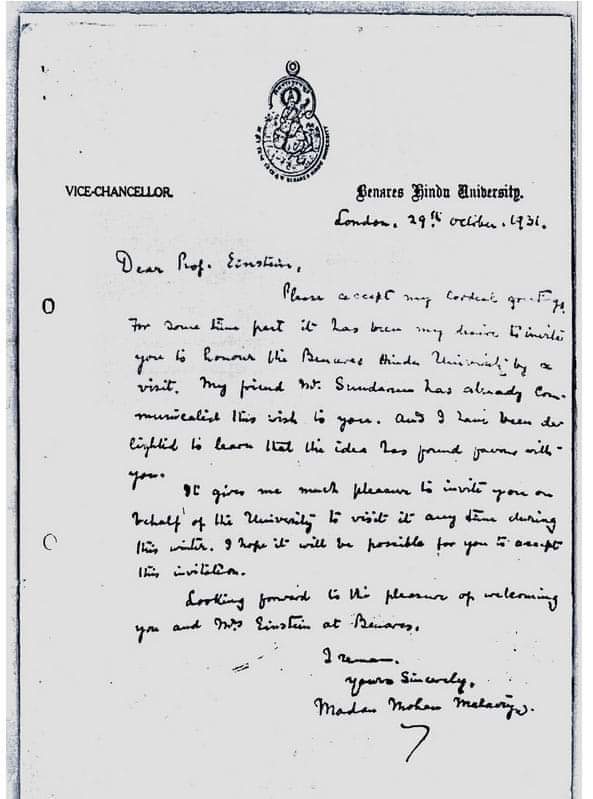 VICE-CHANCELLOR.
Benares Hindu University.
London. 29th October. 1931.
Dear Prof. Einstein,
Please accept my cordial greetings.
For some time past it has been my desire to invite
you to honour the Benares Hindu University by a
visit. My friend Mr. Sundaram has already com-
municated this wish to you. And I have been de-
lighted to learn that the idea has found favour with
you.
It gives me much pleasure to invite you on
behalf of the University to visit it any time during
this winter. I hope it will be possible for you to accept
this invitation.
Looking forward to the pleasure of welcoming
you and Mrs Einstein at Benares.
I remain.
Yours Sincerely,
Madan Mohan Malaviya.